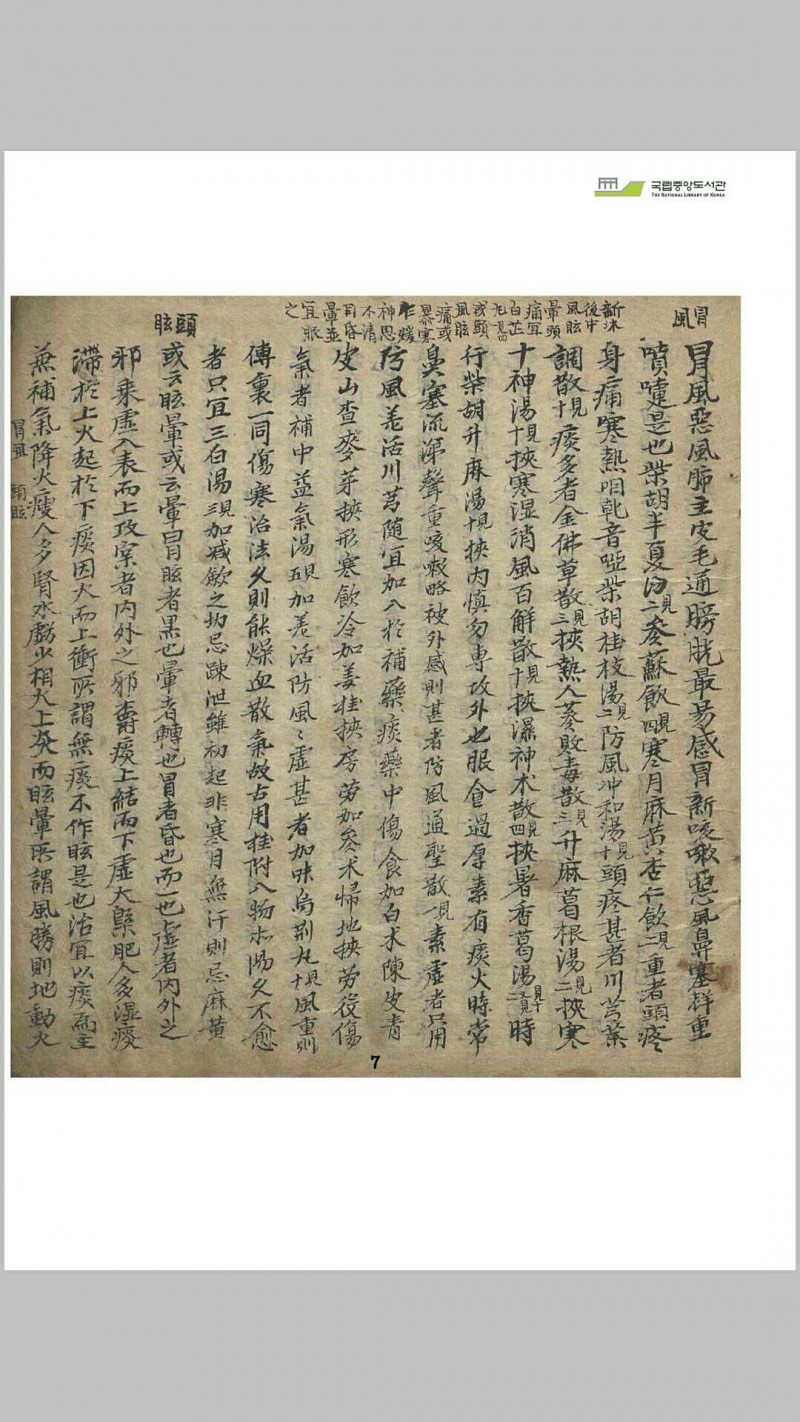 국립중앙도서관
THE NATIONAL LIBRARY OF KOREA
冒風
冒風惡風肺主皮毛通膀胱最易感冒新咳嗽惡風鼻塞群重
噴嚏是也柴胡半夏湯見二參蘇飮見四寒月麻黃杏仁飮見二重者頭疼
身痛寒熱咽乾音啞柴胡桂枝湯見二防風冲和湯見十頭疼甚者川芎茶
調散見十痰多者金佛草散見三挾熱人參敗毒散見三升麻葛根湯見二挾寒
十神湯見十挾寒湿消風百解散見十挾濕神朮散見四挾暑香葛湯時
行柴胡升麻湯見十挾內愼勿專攻外也服會過厚素有痰火時常
鼻塞流涕聲重咳嗽略被外感則甚者防風通聖散見一素虛者只用
防風羌活川芎隨宜加入於補藥痰藥中傷食加白朮陳皮青
皮山查麥芽挾形寒飮冷加姜桂挾房勞加參朮歸地挾勞役傷
氣者補中益氣湯見五加羌活防風〻虛甚者加味烏荆丸見十風重則
傳裏一同傷寒治法久則能燥血散氣故古用桂附入物水湯久不愈
者只宜三白湯見三加减飮之切忌踈泄雖初起非寒月無汗則忌麻黃
新沐後中風眩暈頭痛宜白芷丸見四或頭風眩痛或暴寒乍煖神思不清頭目昏暈並宜服之
頭眩
或云眩暈或云暈冒眩者黑也暈者轉也冒者昏也而一也虛者內外之
邪乘虛入表而上攻窠者內外之邪痰上結而下虛大槩肥人多湿痰
滯於上火起於下痰因火而上衝所謂無痰不作眩是也治宜以痰爲主
兼補氣降火瘦人多腎水虧少相火上炎而眩暈所謂風勝則地動火
冒風 頭眩
7